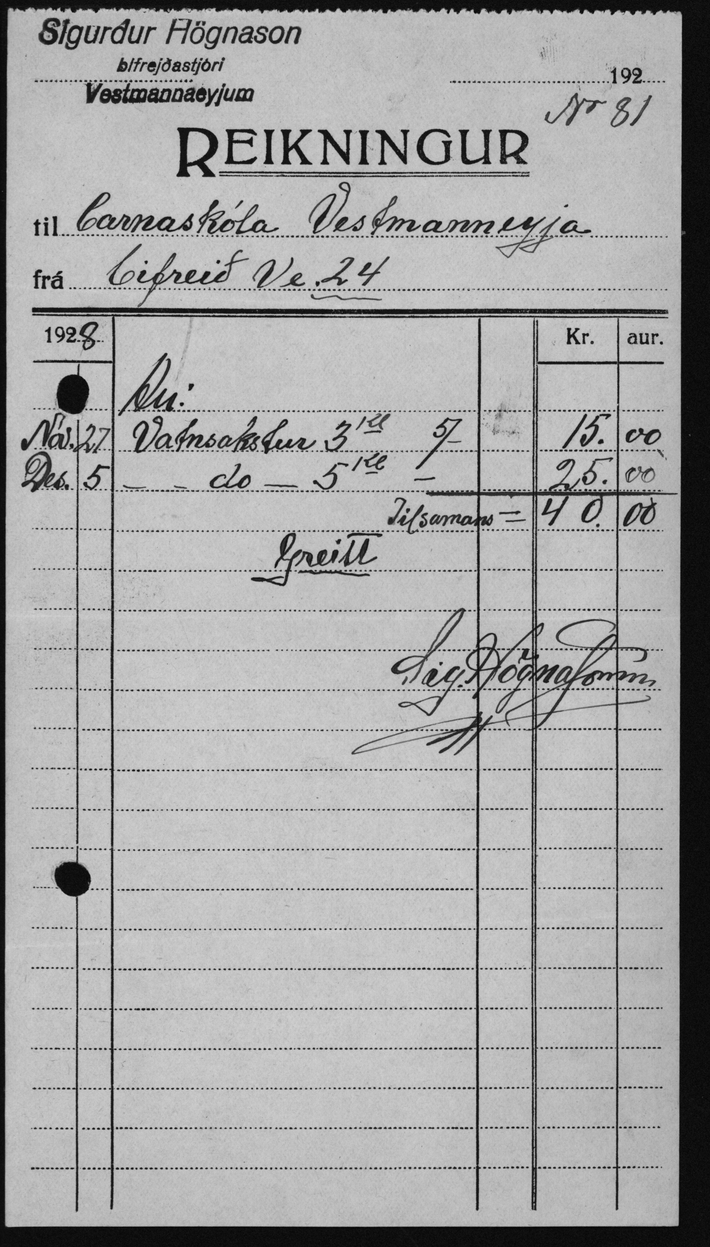 Sigurður Högnason
bifreiðastjóri
Vestmannaeyjum
192
Nr 81
REIKNINGUR
til Barnaskóla Vestmanneyja
frá Bifreið Ve. 24
1928 Kr. aur.
Nóv. 27 Vatnsakstur 3 5/- 15. 00
Des. 5 — - do — 5 — 25. 00
Tilsamans = 40. 00
Greitt
Sig. Högnason